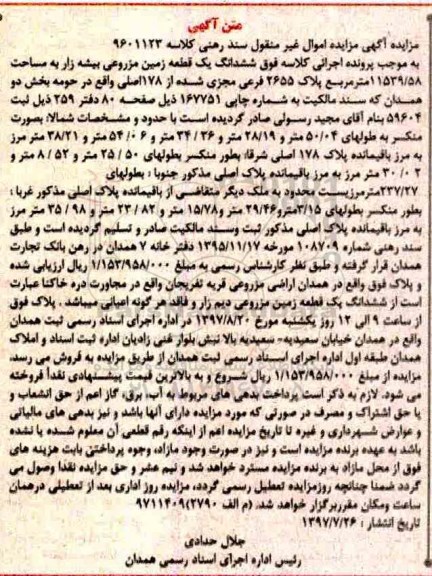 متن آگهی
مزایده آگهی مزایده اموال غیر منقول سند رهنی کلاسه ۹۶۰۱۱۲۳
به موجب پرونده اجرائی کلاسه فوق ششدانگ یک قطعه زمین مزروعی بیشه زار به مساحت
۱۱۵۳۹/۵۸مترمربع پلاک ۲۶۵۵ فرعی مجزی شده از ۱۷۸اصلی واقع در حومه بخش دو
همدان که سند مالکیت به شماره چاپی ۱۶۷۷۵۱ ذیل صفحه ۸۰ دفتر ۲۵۹ ذیل ثبت
۵۹۶۰۴ بنام آقای مجید رسولی صادر گردیده است با حدود و مشخصات شمالا: بصورت
منکسر به طولهای ۵۰/۰۴ متر و ۲۸/۱۹ متر و ۳۶ / ۳۴ متر و ۰۶ / ۵۴ متر و ۳۸/۲۱ متر مرز
به مرز باقیمانده پلاک ۱۷۸ اصلی شرقا: بطور منکسر بطولهای ۵۰ / ۲۵ متر و ۵۲ / ۸ متر و
۰۲ / ۳۰ متر مرز به مرز باقیمانده پلاک اصلی مذکور جنوبا : بطولهای
۲۳۷/۲۷مترمرزیست محدود به ملک دیگر متقاضی از باقیمانده پلاک اصلی مذکور غربا :
بطور منکسر بطولهای ۳/۱۵مترو۲۹/۴۶ متر و۱۵/۷۸ متر و ۸۲ / ۲۳ متر و ۹۸ / ۳۵ متر مرز
به مرز باقیمانده پلاک اصلی مذکور ثبت وسند مالکیت صادر و تسلیم گردیده است و طبق
سند رهنی شماره ۱۰۸۷۰۹ مورخه ۱۳۹۵/۱۱/۱۷ دفتر خانه ۷ همدان در رهن بانک تجارت
همدان قرار گرفته و طبق نظر کارشناس رسمی به مبلغ ۱/۱۵۳/۹۵۸/۰۰۰ ریال ارزیابی شده
و پلاک فوق واقع در همدان اراضی مزروعی قریه تفریجان واقع در مجاورت دره خاکتا عبارت
است از ششدانگ یک قطعه زمین مزروعی دیم زار و فاقد هر گونه اعیانی میباشد . پلاک فوق
از ساعت ۹ الی ۱۲ روز یکشنبه مورخ ۱۳۹۷/۸/۲۰ در اداره اجرای اسناد رسمی ثبت همدان
واقع در همدان خیابان سعیدیه- سعیدیه بالا نبش بلوار غنی زادیان اداره ثبت اسناد و املاک
همدان طبقه اول اداره اجرای اسناد رسمی ثبت همدان از طریق مزایده به فروش می رسد.
مزایده از مبلغ ۱/۱۵۳/۹۵۸/۰۰۰ ریال شروع و به بالاترین قیمت پیشنهادی نقداً فروخته
می شود. لازم به ذکر است پرداخت بدهی های مربوط به آب، برق، گاز اعم از حق انشعاب و
یا حق اشتراک و مصرف در صورتی که مورد مزایده دارای آنها باشد و نیز بدهی های مالیاتی
و عوارض شهرداری و غیره تا تاریخ مزایده اعم از اینکه رقم قطعی آن معلوم شده یا نشده
باشد به عهده برنده مزایده است و نیز در صورت وجود مازاد، وجوه پرداختی بابت هزینه های
فوق از محل مازاد به برنده مزایده مسترد خواهد شد و نیم عشر و حق مزایده نقدا وصول می
گردد ضمنا چنانچه روزمزایده تعطیل رسمی گردد، مزایده روز اداری بعد از تعطیلی درهمان
ساعت ومکان مقرربرگزار خواهد شد. (م الف ۲۷۹۰) ۹۷۱۱۴۰۹
تاریخ انتشار : ۱۳۹۷/۷/۲۶
جلال حدادی
رئیس اداره اجرای اسناد رسمی همدان